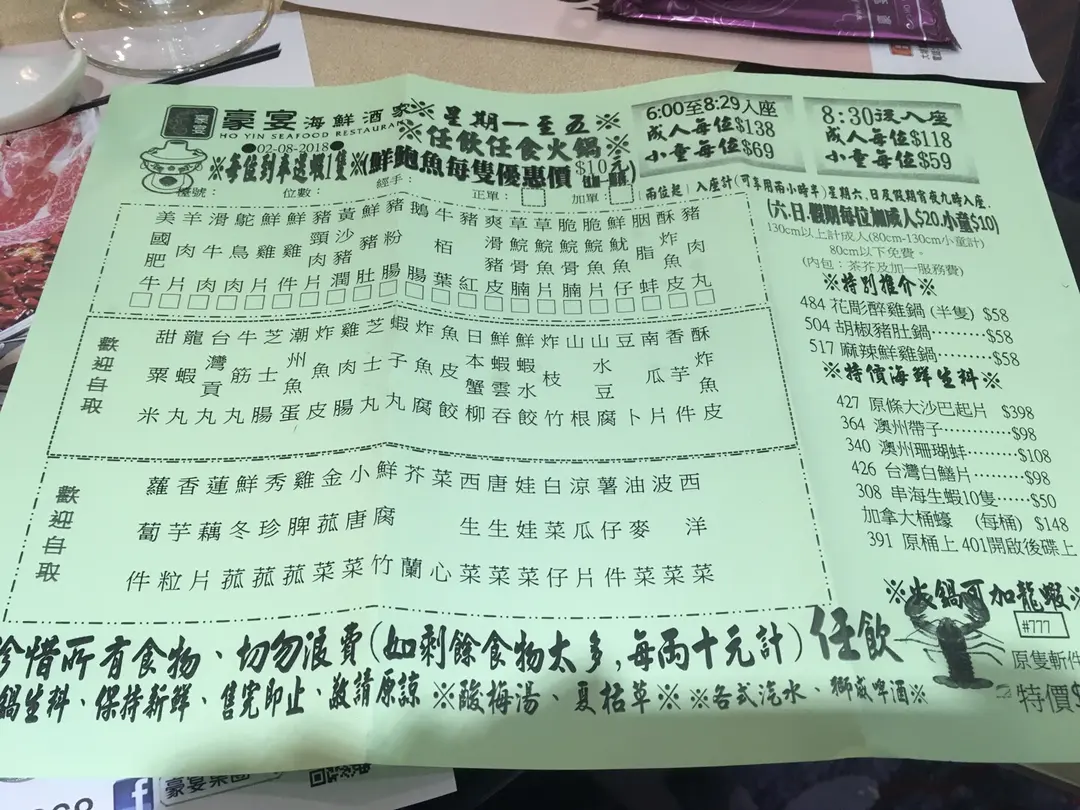 豪宴海鮮酒家
HO YIN SEAFOOD RESTAURANT
●02-08-2018●
※星期一至五※
※任飲任食火鍋※
※每位到奉送蝦1隻※(鮮鮑魚每隻優惠價$10元
檯號：　位數：　經手：　正單：　加單：
6:00至8:29入座
成人每位$138
小童每位$69
8:30後入座
成人每位$118
小童每位$59
兩位起｜入座計(可享用兩小時半)星期六、日及假期宵夜九時入座.
(六.日.假期每位加成人$20.小童$10)
130cm以上計成人(80cm-130cm小童計)
80cm以下免費。
(內包：茶芥及加一服務費)
美國肥牛
羊肉片
滑牛肉
鴕鳥肉
鮮雞片
鮮雞件
豬頸肉片
黃沙豬潤
鮮豬肚
豬粉腸
鵝腸
牛栢葉
豬紅
爽滑豬皮
草鯇骨腩
草鯇魚片
脆鯇骨腩
脆鯇魚片
鮮魷魚仔
胭脂蚌
酥炸魚皮
豬肉丸
歡迎自取
甜粟米
龍蝦丸
台灣貢丸
牛筋丸
芝士腸
潮州魚蛋
炸魚皮
雞肉腸
芝士丸
蝦子丸
炸魚腐
魚皮餃
日本蟹柳
鮮蝦雲吞
鮮蝦水餃
炸枝竹
山根
山水豆腐
豆卜
南瓜片
香芋件
酥炸魚皮
歡迎自取
蘿蔔件
香芋粒
蓮藕片
鮮冬菰
秀珍菰
雞脾菰
金菰菜
小唐菜
鮮腐竹
芥蘭
菜心
西生菜
唐生菜
娃娃菜
白菜仔
涼瓜片
薯仔件
油麥菜
波菜
西洋菜
※特別推介※
484 花彫醉雞鍋 (半隻) $58
504 胡椒豬肚鍋………$58
517 麻辣鮮雞鍋………$58
※特價海鮮生料※
427 原條大沙巴起片 $398
364 澳州帶子…………$98
340 澳州珊瑚蚌………$108
426 台灣白鱔片………$98
308 串海生蝦10隻……$50
加拿大桶蠔 (每桶) $148
391 原桶上 401開啟後碟上
鍋可加龍蝦※
#777
原隻斬件
特價$
珍惜所有食物、切勿浪費(如剩餘食物太多,每両十元計)任飲
鍋生料、保持新鮮、售完即止、敬請原諒 ※酸梅湯、夏枯草※※各式汽水、獅威啤酒※
豪宴集團